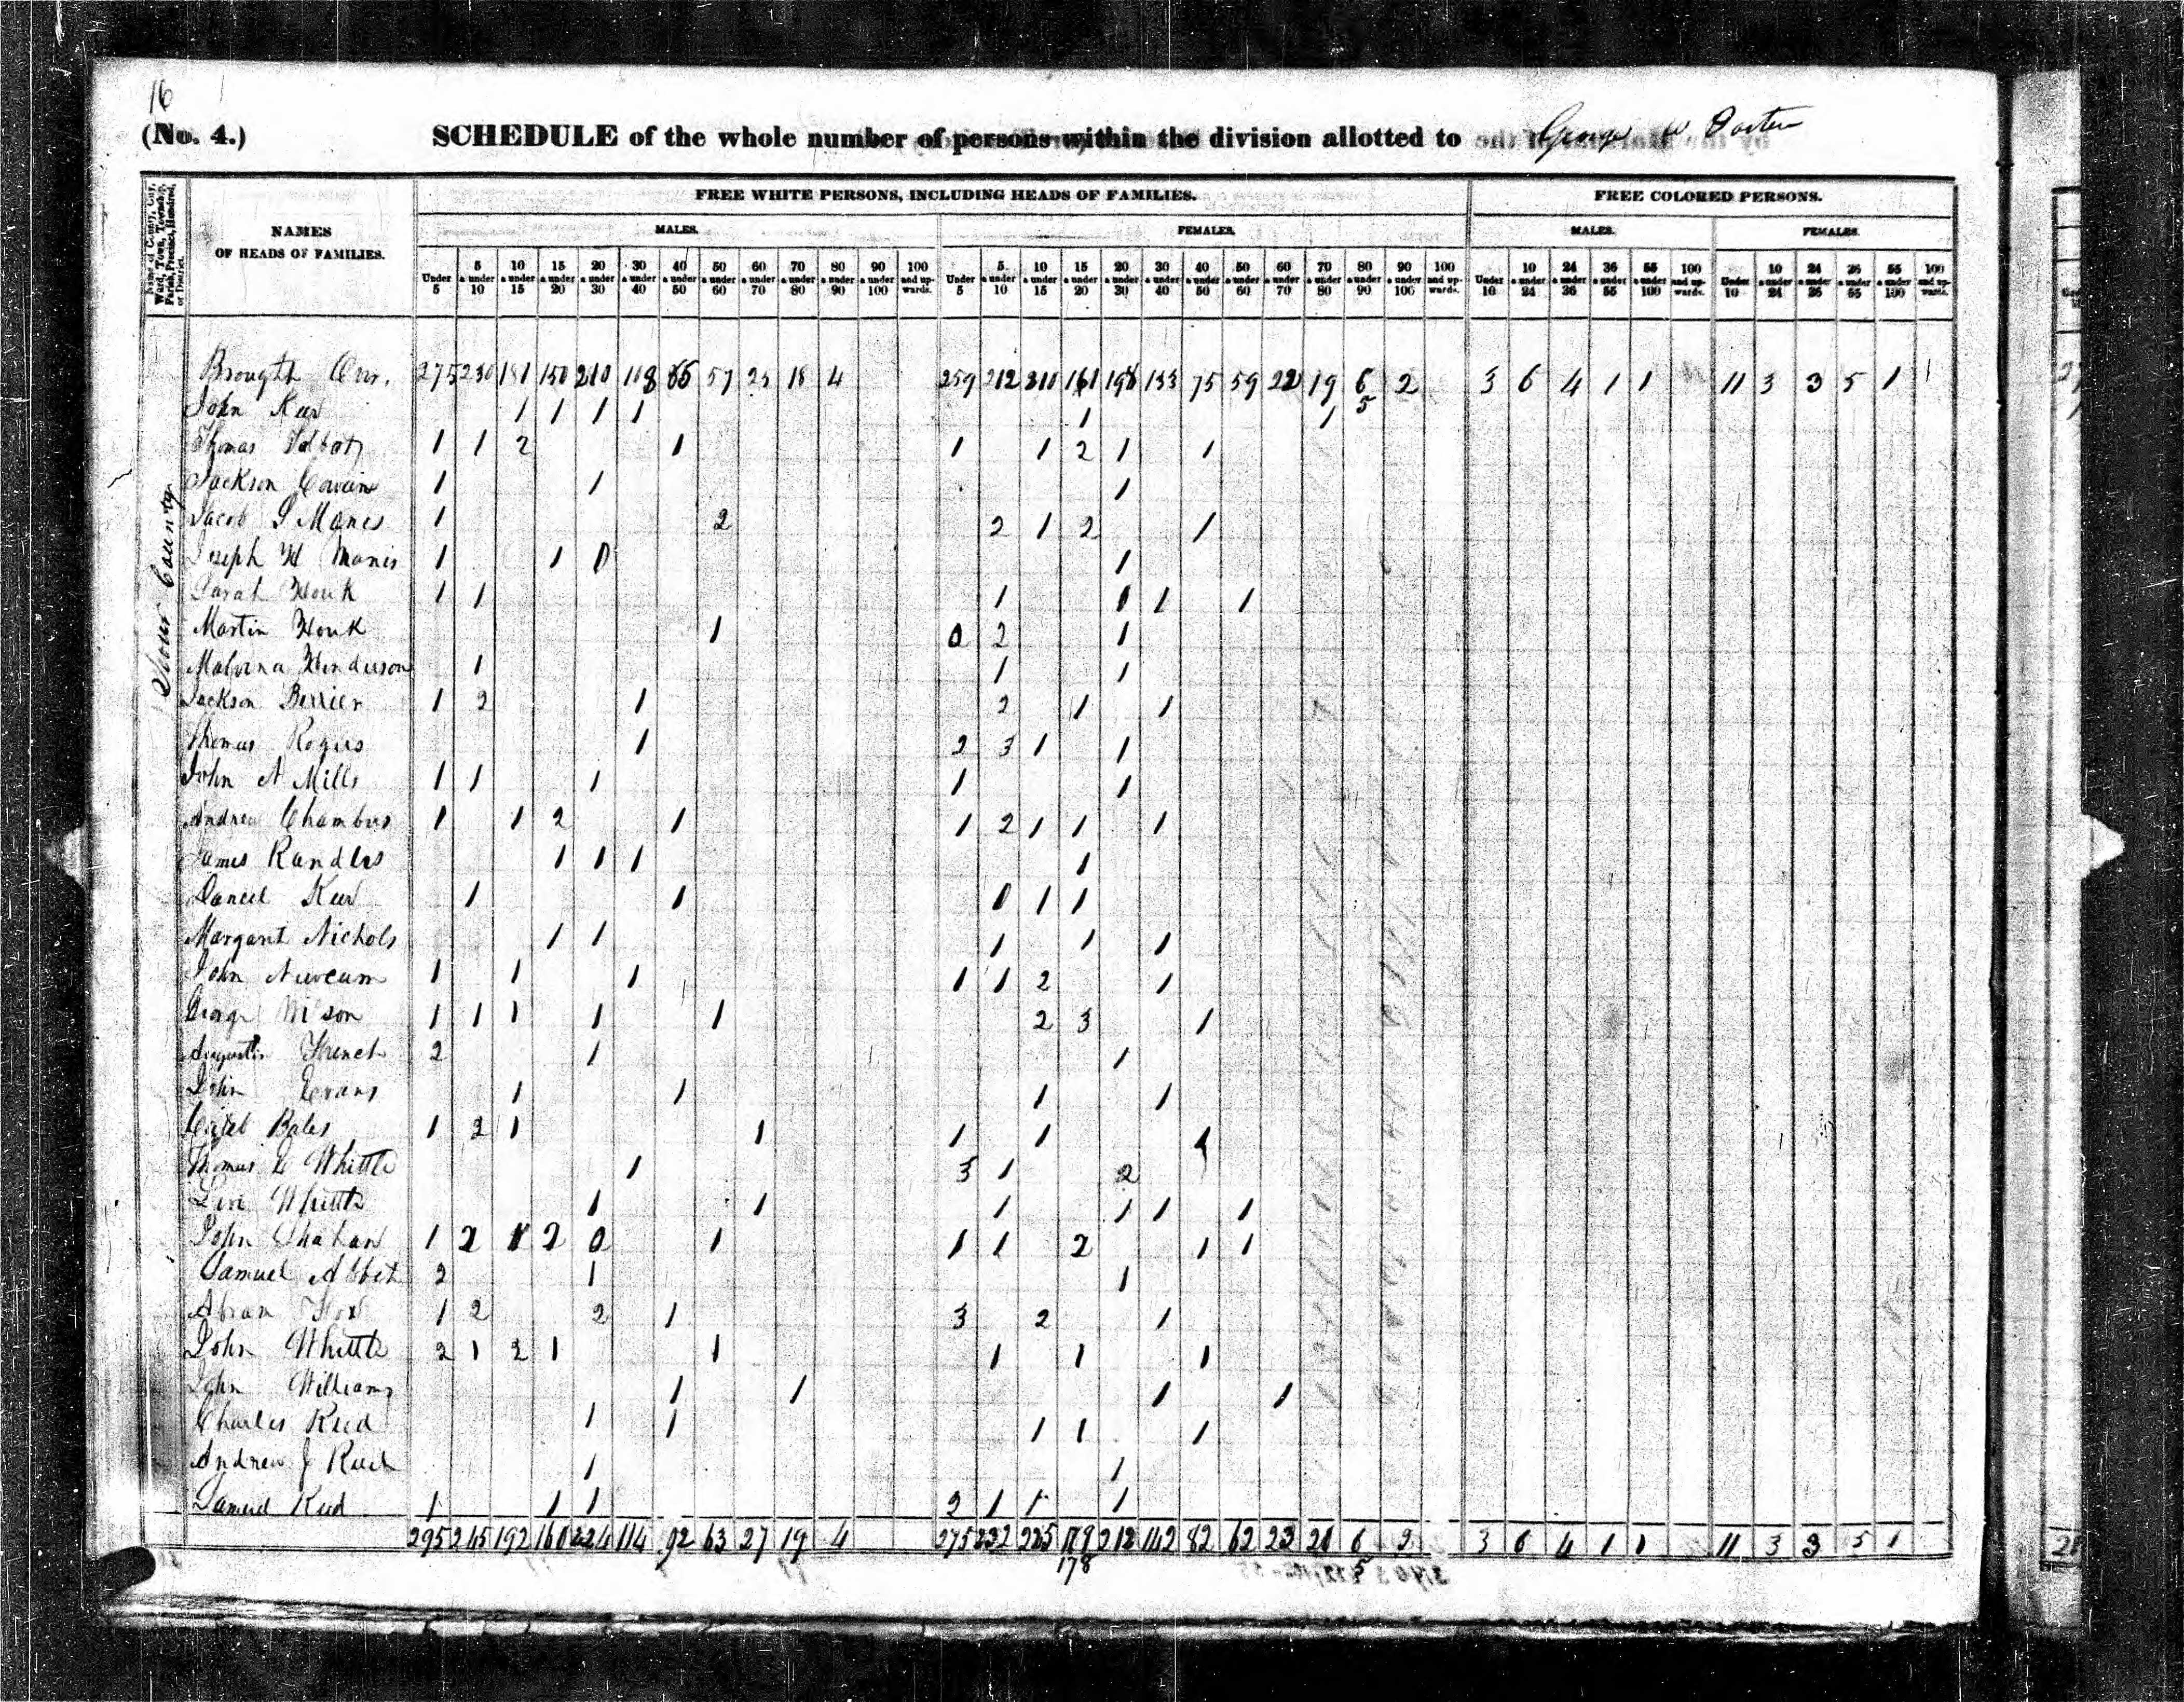 16
(No. 4.) SCHEDULE of the whole number of persons within the division allotted to George W Porter
Name of County, City, Ward, Town, Township, Parish, Precinct, Hundred, or District.
NAMES OF HEADS OF FAMILIES.
FREE WHITE PERSONS, INCLUDING HEADS OF FAMILIES.
FREE COLORED PERSONS.
MALES. FEMALES. MALES. FEMALES.
Under 5 | 5 & under 10 | 10 & under 15 | 15 & under 20 | 20 & under 30 | 30 & under 40 | 40 & under 50 | 50 & under 60 | 60 & under 70 | 70 & under 80 | 80 & under 90 | 90 & under 100 | 100 and upwards. | Under 5 | 5 & under 10 | 10 & under 15 | 15 & under 20 | 20 & under 30 | 30 & under 40 | 40 & under 50 | 50 & under 60 | 60 & under 70 | 70 & under 80 | 80 & under 90 | 90 & under 100 | 100 and upwards. | Under 10 | 10 & under 24 | 24 & under 36 | 36 & under 55 | 55 & under 100 | 100 and upwards. | Under 10 | 10 & under 24 | 24 & under 36 | 36 & under 55 | 55 & under 100 | 100 and upwards.
County
Brought Over. 275 230 181 150 210 108 86 57 25 18 4 259 212 210 161 198 133 75 59 22 19 6 2 3 6 4 1 1 11 3 3 5 1
John 1 1 1 1 1 1 5
Thomas Talbot 1 1 2 1 1 1 2 1 1
Jackson 1 1 1
Jacob S Manes 1 2 2 1 2 1
Joseph H Manes 1 1 0 1
Sarah Houk 1 1 1 0 1 1
Martin Houk 1 0 2 1
Malvina Henderson 1 1 1
Jackson Berrier 1 2 1 2 1 1
Thomas Rogers 1 2 3 1 1
John A Mills 1 1 1 1 1
Andrew Chambers 1 1 2 1 1 2 1 1 1
James Randles 1 1 1 1
Daniel 1 1 0 1 1
Margaret Nichols 1 1 1 1 1
John Newcum 1 1 1 1 1 2 1
George Wilson 1 1 1 1 1 2 3 1
Augustin French 2 1 1
John Evans 1 1 1 1
Caleb Bales 1 2 1 1 1 1 1
Thomas Whittle 1 3 1 2
Levi Whittle 1 1 1 1 1 1
John Shahan 1 2 1 2 0 1 1 1 2 1 1
Samuel Abbet 2 1 1
Abram Fox 1 2 2 1 3 2 1
John Whittle 2 1 2 1 1 1 1 1
John Williams 1 1 1 1
Charles Reed 1 1 1 1 1
Andrew J 1 1
Samuel Reed 1 1 1 2 1 1 1
295 245 192 160 224 114 92 63 27 19 4 275 232 225 179 212 142 82 62 23 20 6 2 3 6 4 1 1 11 3 3 5 1
178 5